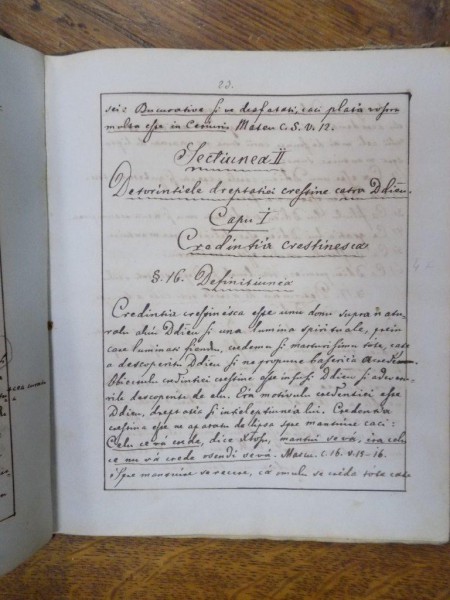 23.
sei: Bucurative si ve desfatati, caci plata vostra
multa este in Ceriuri Mateu C. 5. V. 12.
Sectiunea II
Detorintiele dreptatiei crestine catra Ddieu.
Capu I
Credintia crestinesca
§. 16. Definitiunea
Credintia crestinesca este unu donu supra natu
ralu alui Ddieu si una lumina spirituale, prein
care luminati fiendu, credemu si marturisimu tote, cate
a descoperitu Ddieu si ne propune baserica
Obiectulu credintiei crestine este insusi Ddieu si adeve
rile descoperite de elu. Era motivulu credintiei este
Ddieu, dreptatea si intieleptiunea lui. Credentia
crestina este ne aparatu de lipsa spre mantuire caci:
Celu ce vá crede, dice Xtosu, mantui se vá, éra celu
ce nu vá crede osendi se vá. Marcu. C. 16. v. 15-16.
Spre mantuire se recere, că omulu se creda tote cate